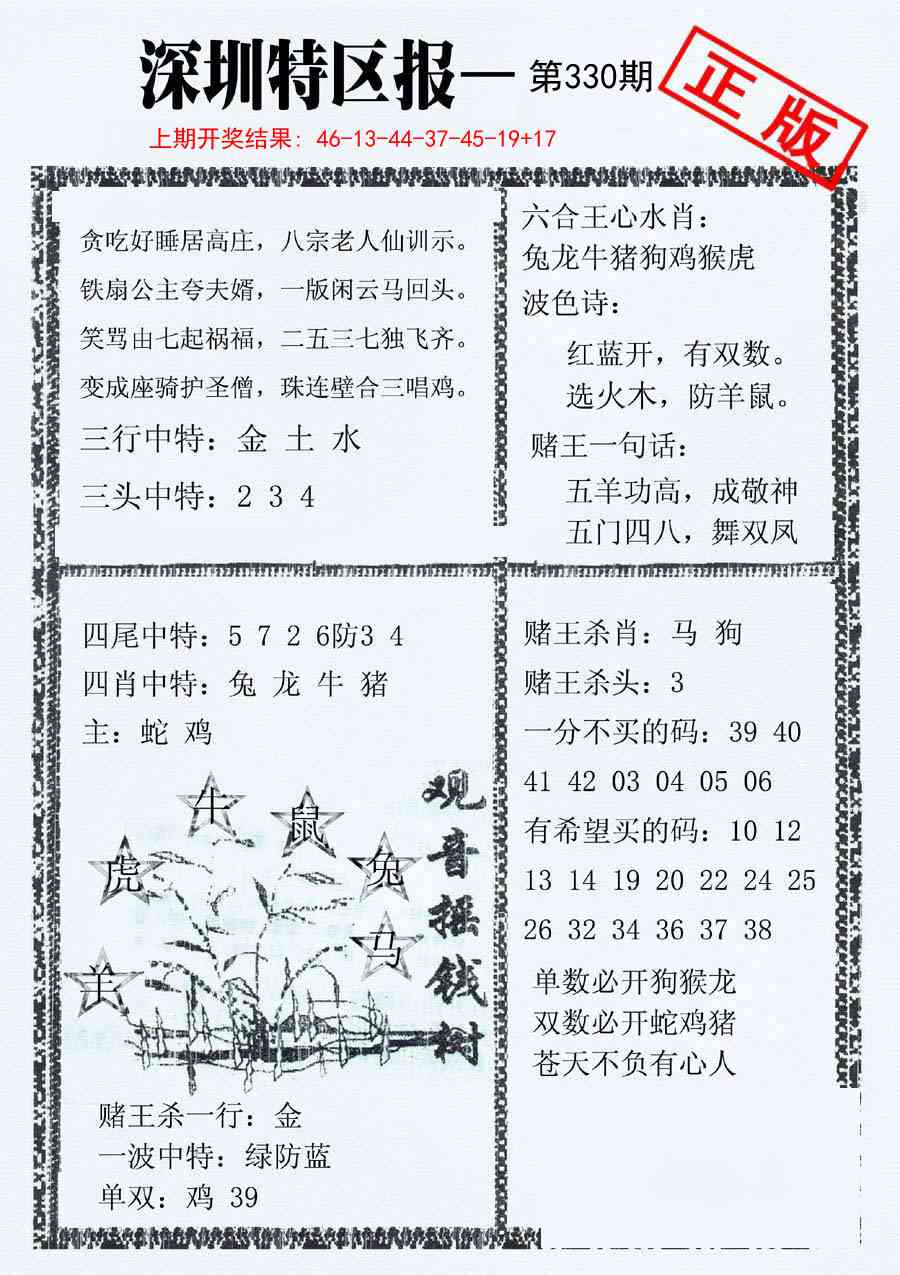 深圳特区报—第330期
正版
上期开奖结果: 46-13-44-37-45-19+17
贪吃好睡居高庄，八宗老人仙训示。
铁扇公主夸夫婿，一版闲云马回头。
笑骂由七起祸福，二五三七独飞齐。
变成座骑护圣僧，珠连壁合三唱鸡。
三行中特：金 土 水
三头中特：2 3 4
六合王心水肖：
兔龙牛猪狗鸡猴虎
波色诗：
红蓝开，有双数。
选火木，防羊鼠。
赌王一句话：
五羊功高，成敬神
五门四八，舞双凤
四尾中特：5 7 2 6防3 4
四肖中特：兔 龙 牛 猪
主：蛇 鸡
牛
鼠
虎
兔
马
羊
观音摇钱树
赌王杀一行：金
一波中特：绿防蓝
单双：鸡 39
赌王杀肖：马 狗
赌王杀头：3
一分不买的码：39 40
41 42 03 04 05 06
有希望买的码：10 12
13 14 19 20 22 24 25
26 32 34 36 37 38
单数必开狗猴龙
双数必开蛇鸡猪
苍天不负有心人